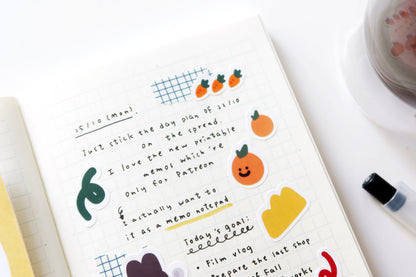 25/10 (Mon).
Just stick the day plan of 25/10
on the spread.
I love the new printable
memos which're
only for Patreon
I actually want to
it as a memo notepad
Today's goal:
• Film vlog
Prepare the last shop
of Fall works